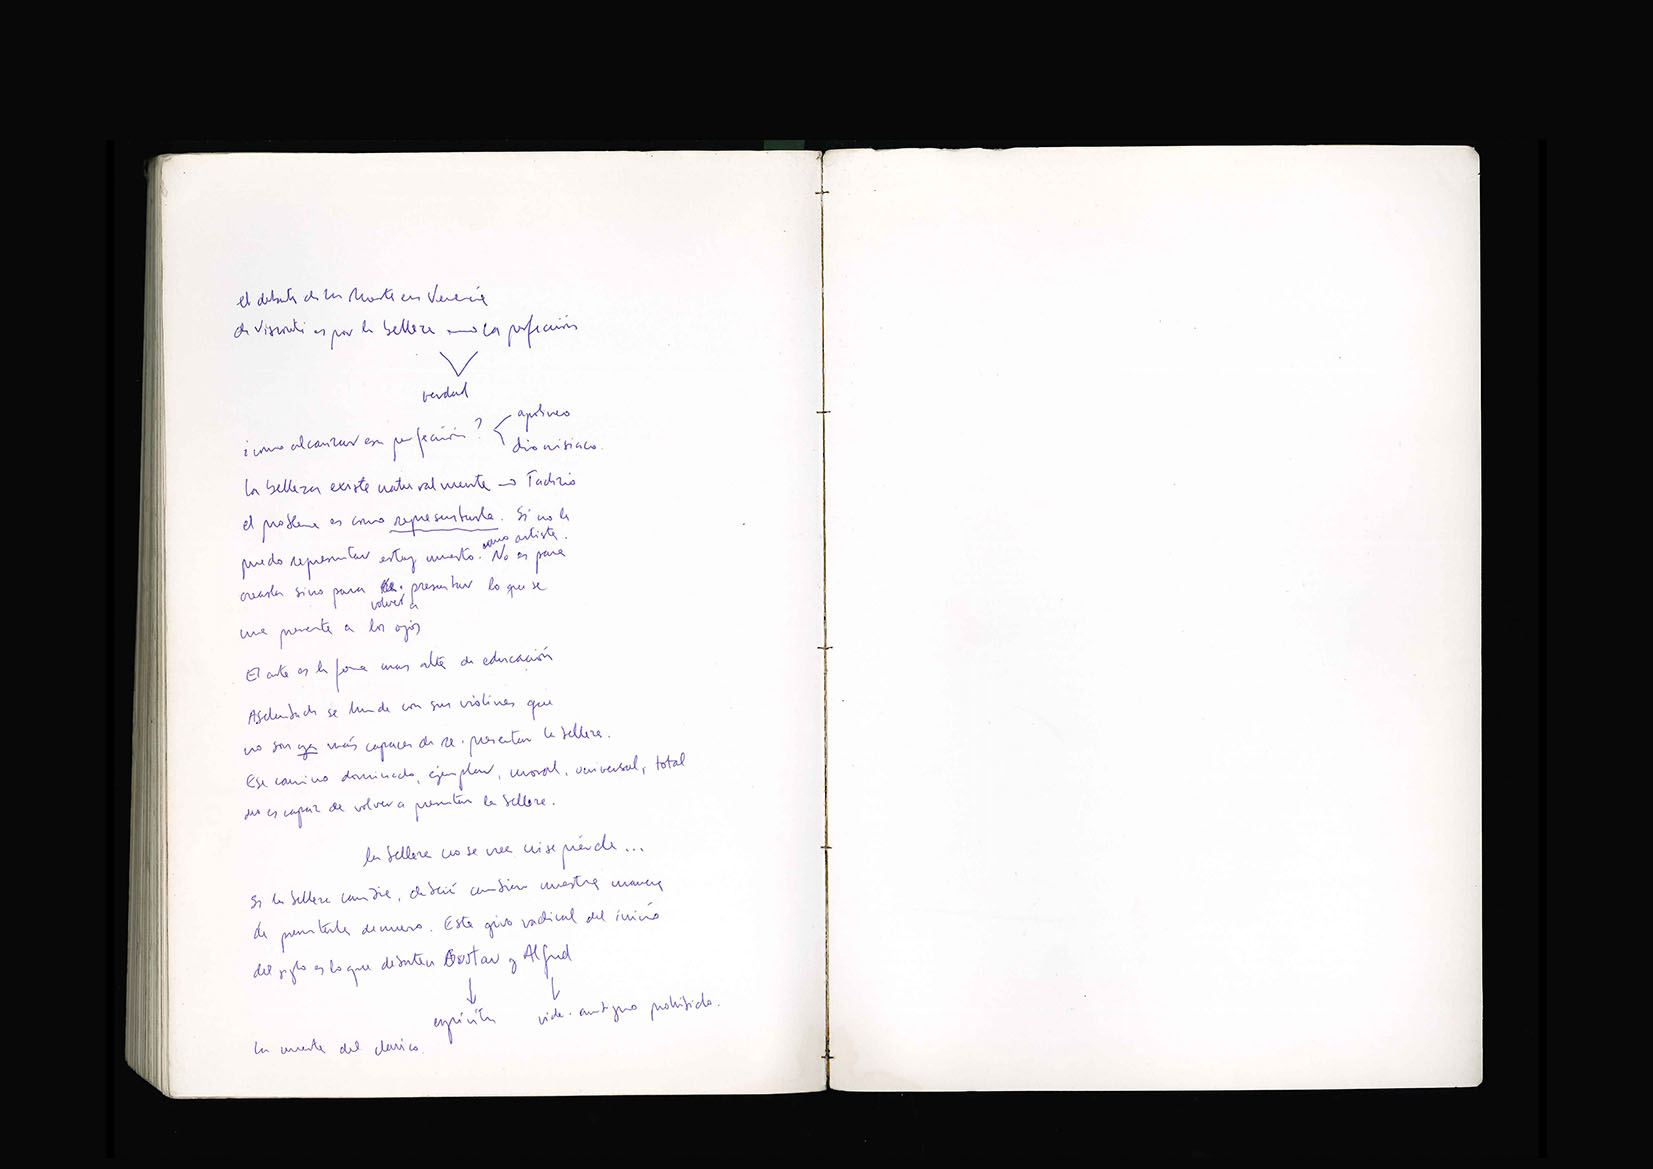 el debate de la Muerte en Venecia
de Visconti es por la belleza → la perfección
verdad
¿como alcanzar esa perfección? apolineo
dionisiaco.
La belleza existe naturalmente → Tadzio
el problema es como representarla. Si no la
como artista.
puedo representar estoy muerto. No es para
crearla sino para re-presentar lo que se
volver a
presenta a los ojos
El arte es la forma mas alta de educación
se hunde con sus violines que
no son ya más capaces de re-presentar la belleza.
Ese camino dominado, ejemplar, moral, universal, total
no es capaz de volver a presentar la belleza.
la belleza no se crea ni se pierde...
Si la belleza cambia, deberá cambiar nuestra manera
de presentarla de nuevo. Este giro radical del inicio
del siglo es lo que debaten Gustav y Alfred
espíritu vida. antiguo prohibido.
La muerte del clasico.